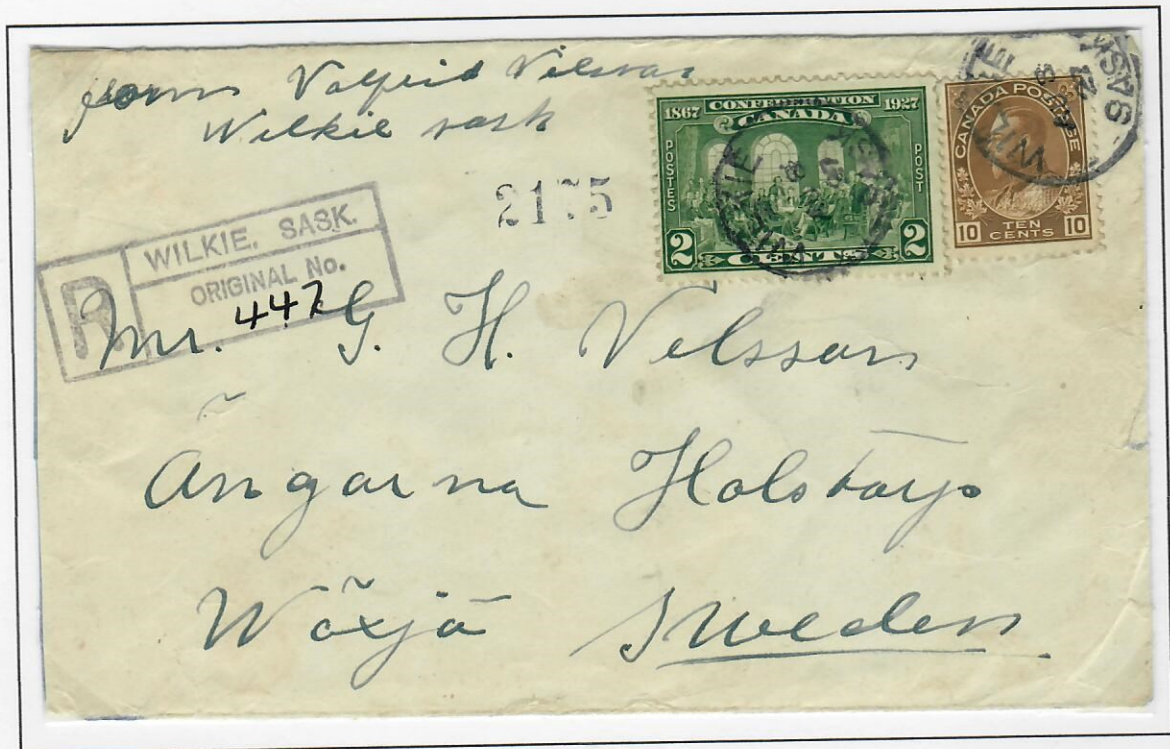 from Valfrid Nilsson
Wilkie sask
1867 CONFEDERATION 1927
CANADA
POSTES POST
2 CENTS 2
CANADA POSTAGE
10 TEN CENTS 10
SASK
2175
R WILKIE, SASK.
ORIGINAL No.
447
Mr. G. H. Nilsson
Ängarna Holstorp
Wäxjö Sweden